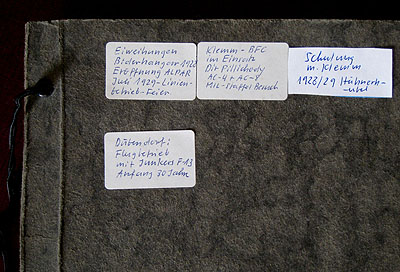 Einweihungen
Biderhangar 1922
Eröffnung ALPAR
Juli 1929 - Linien-
betrieb - Feier.
Klemm - BFC
im Einsatz
Dir Pillichody
AC-4 + AC-8
MIL-Staffel Besuch
Schulung
m. Klemm
1928/29
Dübendorf:
Flugbetrieb
mit Junkers F-13
Anfang 30 Jahre